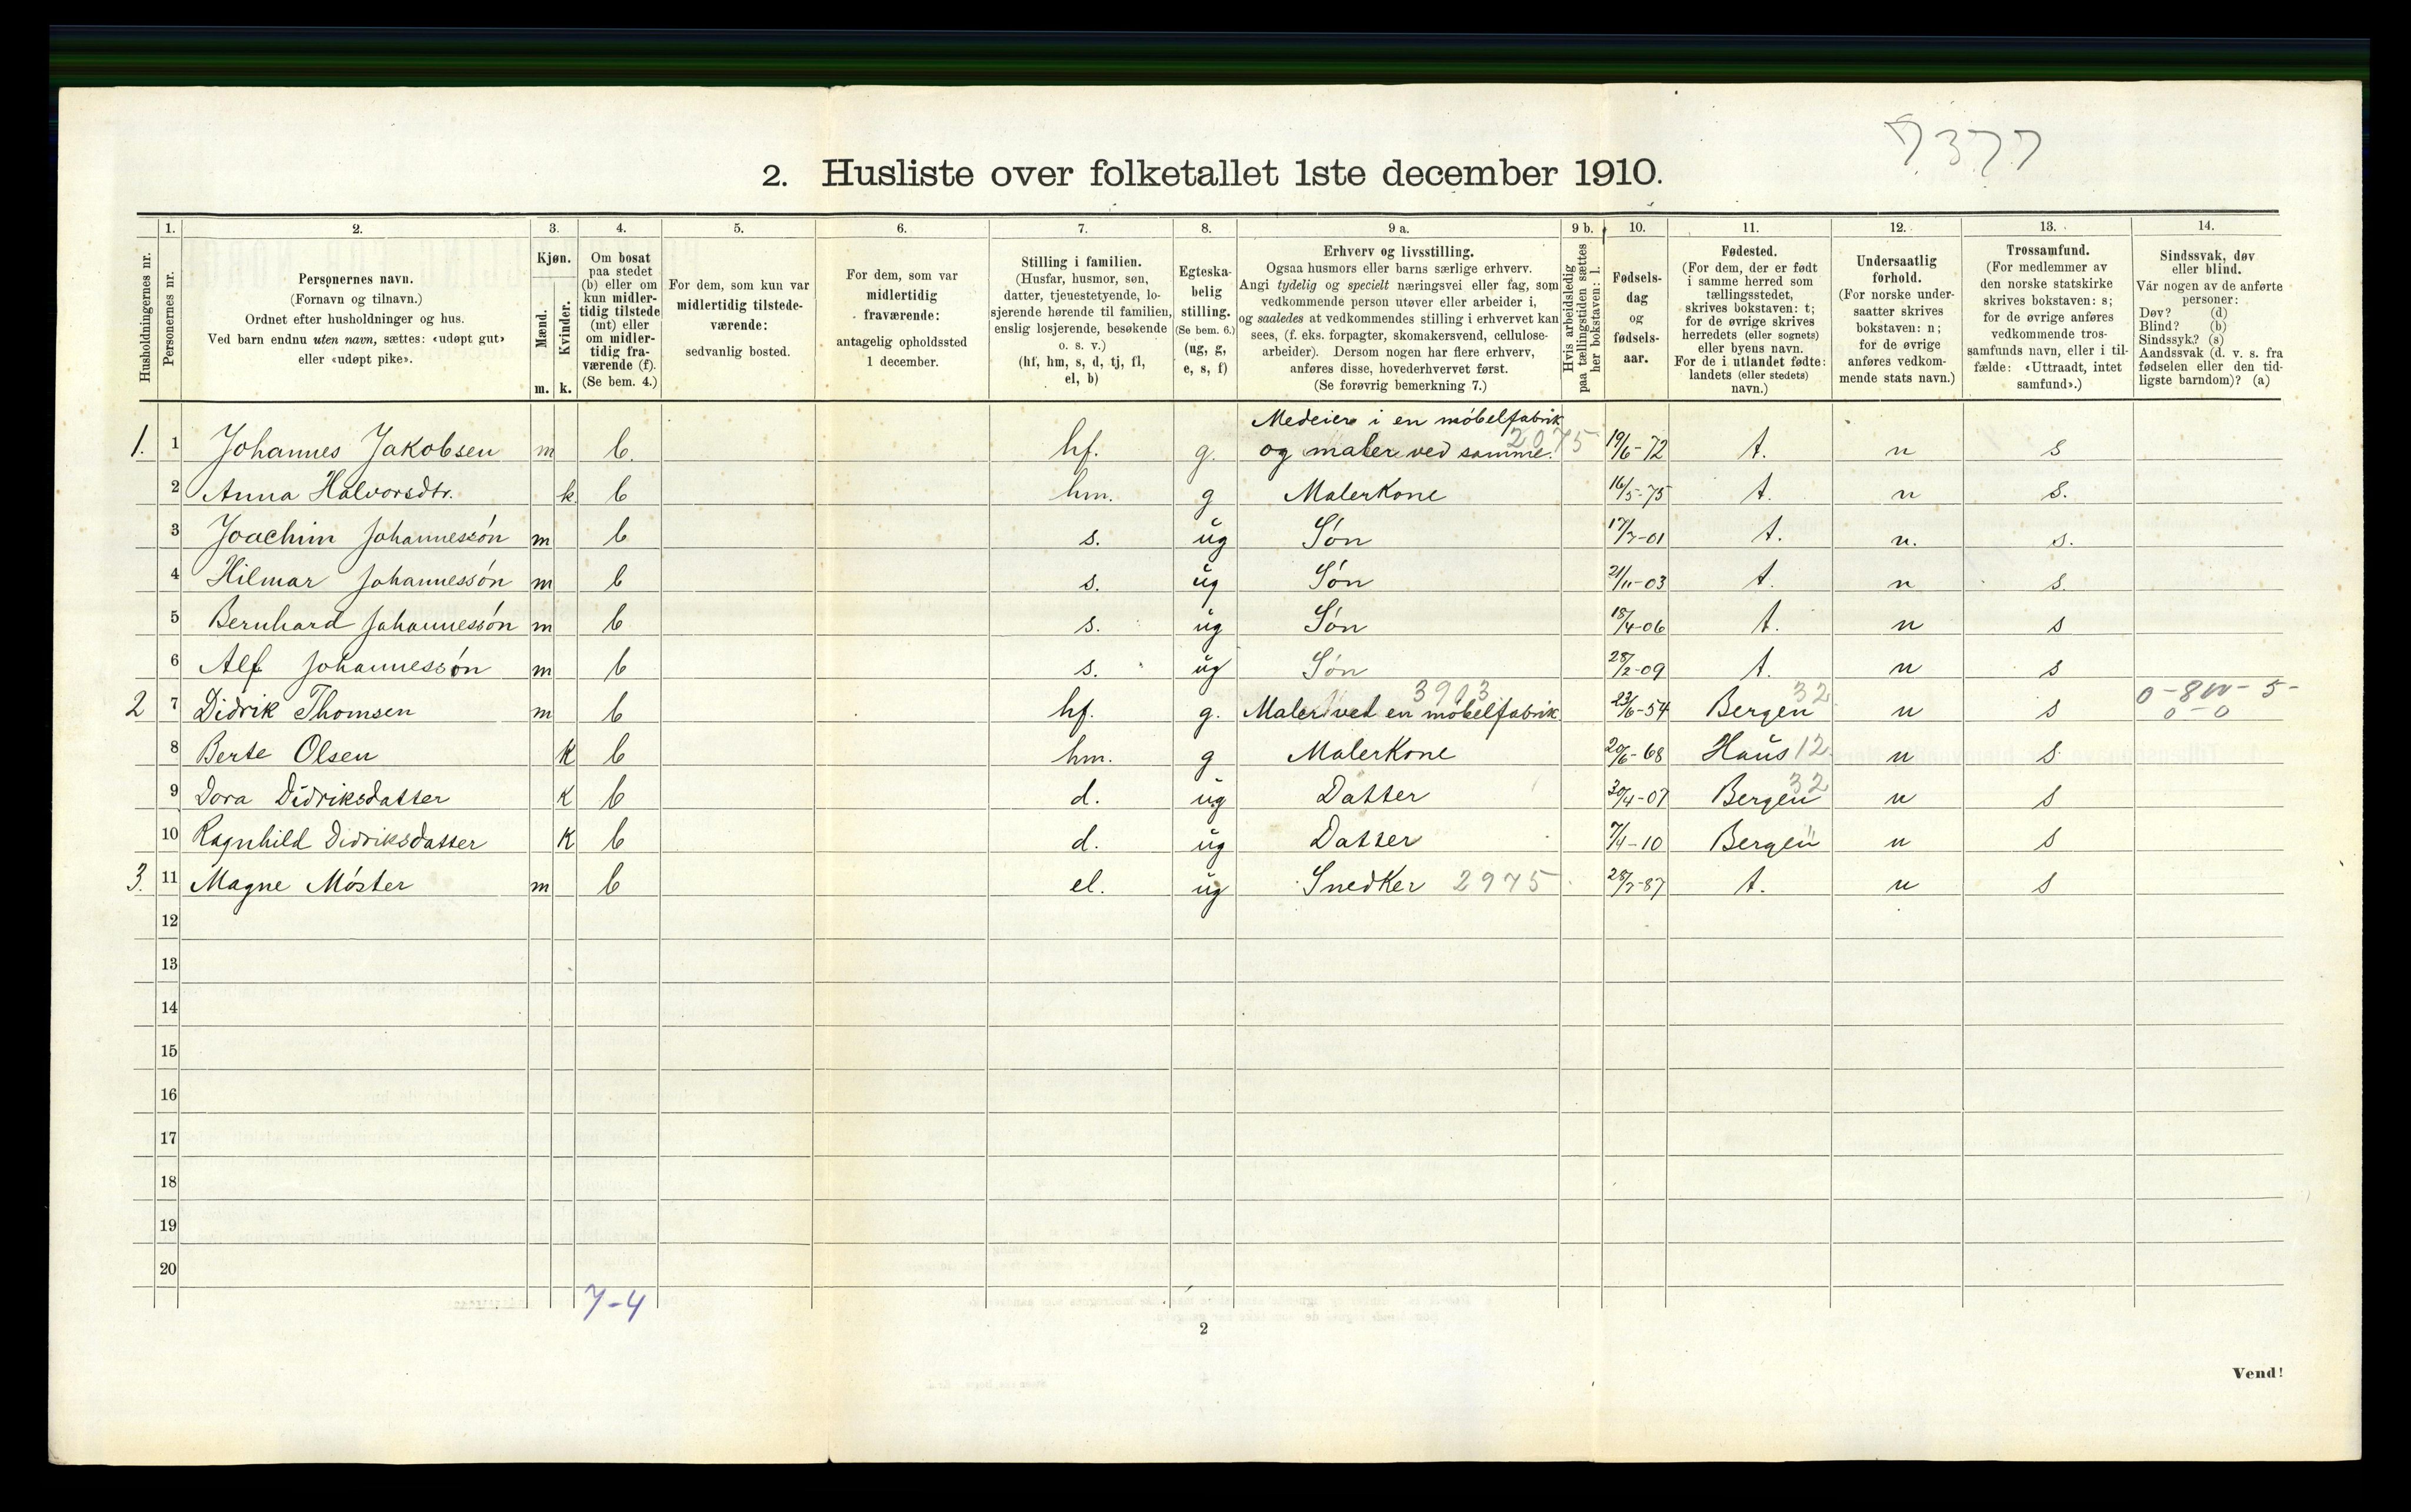 7377
2. Husliste over folketallet 1ste december 1910.
1. 2. 3. 4. 5. 6. 7. 8. 9 a. 9 b. 10. 11. 12. 13. 14.
Husholdningernes nr.
Personernes nr.
Personernes navn.
(Fornavn og tilnavn.)
Ordnet efter husholdninger og hus.
Ved barn endnu uten navn, sættes: «udøpt gut»
eller «udøpt pike».
Kjøn.
Mænd.
Kvinder.
m. k.
Om bosat
paa stedet
(b) eller om
kun midler-
tidig tilstede
(mt) eller
om midler-
tidig fra-
værende (f).
(Se bem. 4.)
For dem, som kun var
midlertidig tilstede-
værende:
sedvanlig bosted.
For dem, som var
midlertidig
fraværende:
antagelig opholdssted
1 december.
Stilling i familien.
(Husfar, husmor, søn,
datter, tjenestetyende, lo-
sjerende hørende til familien,
enslig losjerende, besøkende
o. s. v.)
(hf, hm, s, d, tj, fl,
el, b)
Egteska-
belig
stilling.
(Se bem. 6.)
(ug, g,
e, s, f)
Erhverv og livsstilling.
Ogsaa husmors eller barns særlige erhverv.
Angi tydelig og specielt næringsvei eller fag, som
vedkommende person utøver eller arbeider i,
og saaledes at vedkommendes stilling i erhvervet kan
sees, (f. eks. forpagter, skomakersvend, cellulose-
arbeider). Dersom nogen har flere erhverv,
anføres disse, hovederhvervet først.
(Se forøvrig bemerkning 7.)
Hvis arbeidsledig
paa tællingstiden sættes
her bokstaven: l.
Fødsels-
dag
og
fødsels-
aar.
Fødested.
(For dem, der er født
i samme herred som
tællingsstedet,
skrives bokstaven: t;
for de øvrige skrives
herredets (eller sognets)
eller byens navn.
For de i utlandet fødte:
landets (eller stedets)
navn.)
Undersaatlig
forhold.
(For norske under-
saatter skrives
bokstaven: n;
for de øvrige
anføres vedkom-
mende stats navn.)
Trossamfund.
(For medlemmer av
den norske statskirke
skrives bokstaven: s;
for de øvrige anføres
vedkommende tros-
samfunds navn, eller i til-
fælde: «Uttraadt, intet
samfund».)
Sindssvak, døv
eller blind.
Vår nogen av de anførte
personer:
Døv? (d)
Blind? (b)
Sindssyk? (s)
Aandssvak (d. v. s. fra
fødselen eller den tid-
ligste barndom)? (a)
Medeier i en møbelfabrik
1. 1 Johannes Jakobsen m b. hf. g. og maler ved samme. 2075 19/6-72 t. n s
2 Anna Halvorsdtr. k b hm. g Malerkone 16/5-75 t. n s.
3 Joachim Johannessón m b s. ug Són 17/7-01 t. n. s.
4 Hilmar Johannessón m b s. ug Són 21/11-03 t. n s.
5 Bernhard Johannessón m b s. ug Són 18/4-06 t. n s
6 Alf Johannessón m b s. ug Són 28/2-09 t. n s
2 7 Didrik Thomsen m b hf. g. Maler ved en møbelfabrik 3913 23/6-54 Bergen 32 n s 0-800-5-
0-0
8 Berte Olsen k b hm. g Malerkone 20/6-68 Haus 12 n s
9 Dora Didriksdatter k b d. ug Datter 30/4-07 Bergen 32 n s
10 Ragnhild Didriksdatter k b d. ug Datter 7/4-10 Bergen " n s
3. 11 Magne Móster m b el. ug Snedker 2975 28/7-87 t. n s
12
13
14
15
16
17
18
19
20
7-4
2
Vend!